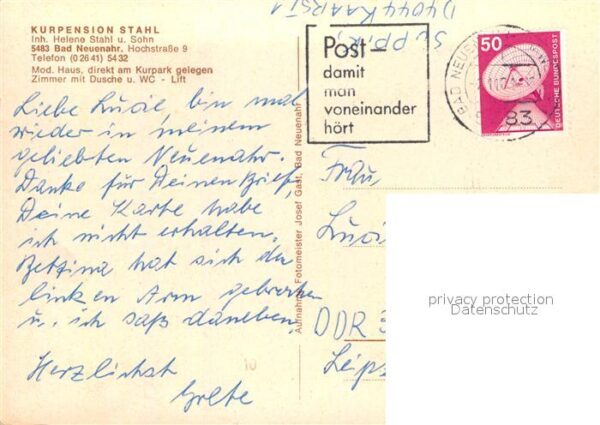 KURPENSION STAHL
Inh. Helene Stahl u. Sohn
5483 Bad Neuenahr, Hochstraße 9
Telefon (0 26 41) 54 32
Mod. Haus, direkt am Kurpark gelegen
Zimmer mit Dusche u. WC - Lift
Liebe Lucie bin mal
wieder in meinem
geliebten Neuenahr.
Danke für Deinen Brief,
Deine Karte habe
ich nicht erhalten,
Bettina hat sich den
linken Arm gebrochen
u. ich saß daneben,
Herzlichst
Grete
Aufnahme Fotomeister Josef Gast, Bad Neuenahr
D4044 KAARST 1
Post-
damit
man
voneinander
hört
BAD NEUENAHR
83
50
DEUTSCHE BUNDESPOST
Frau
Lucie
DDR
Leipz
10
privacy protection
Datenschutz